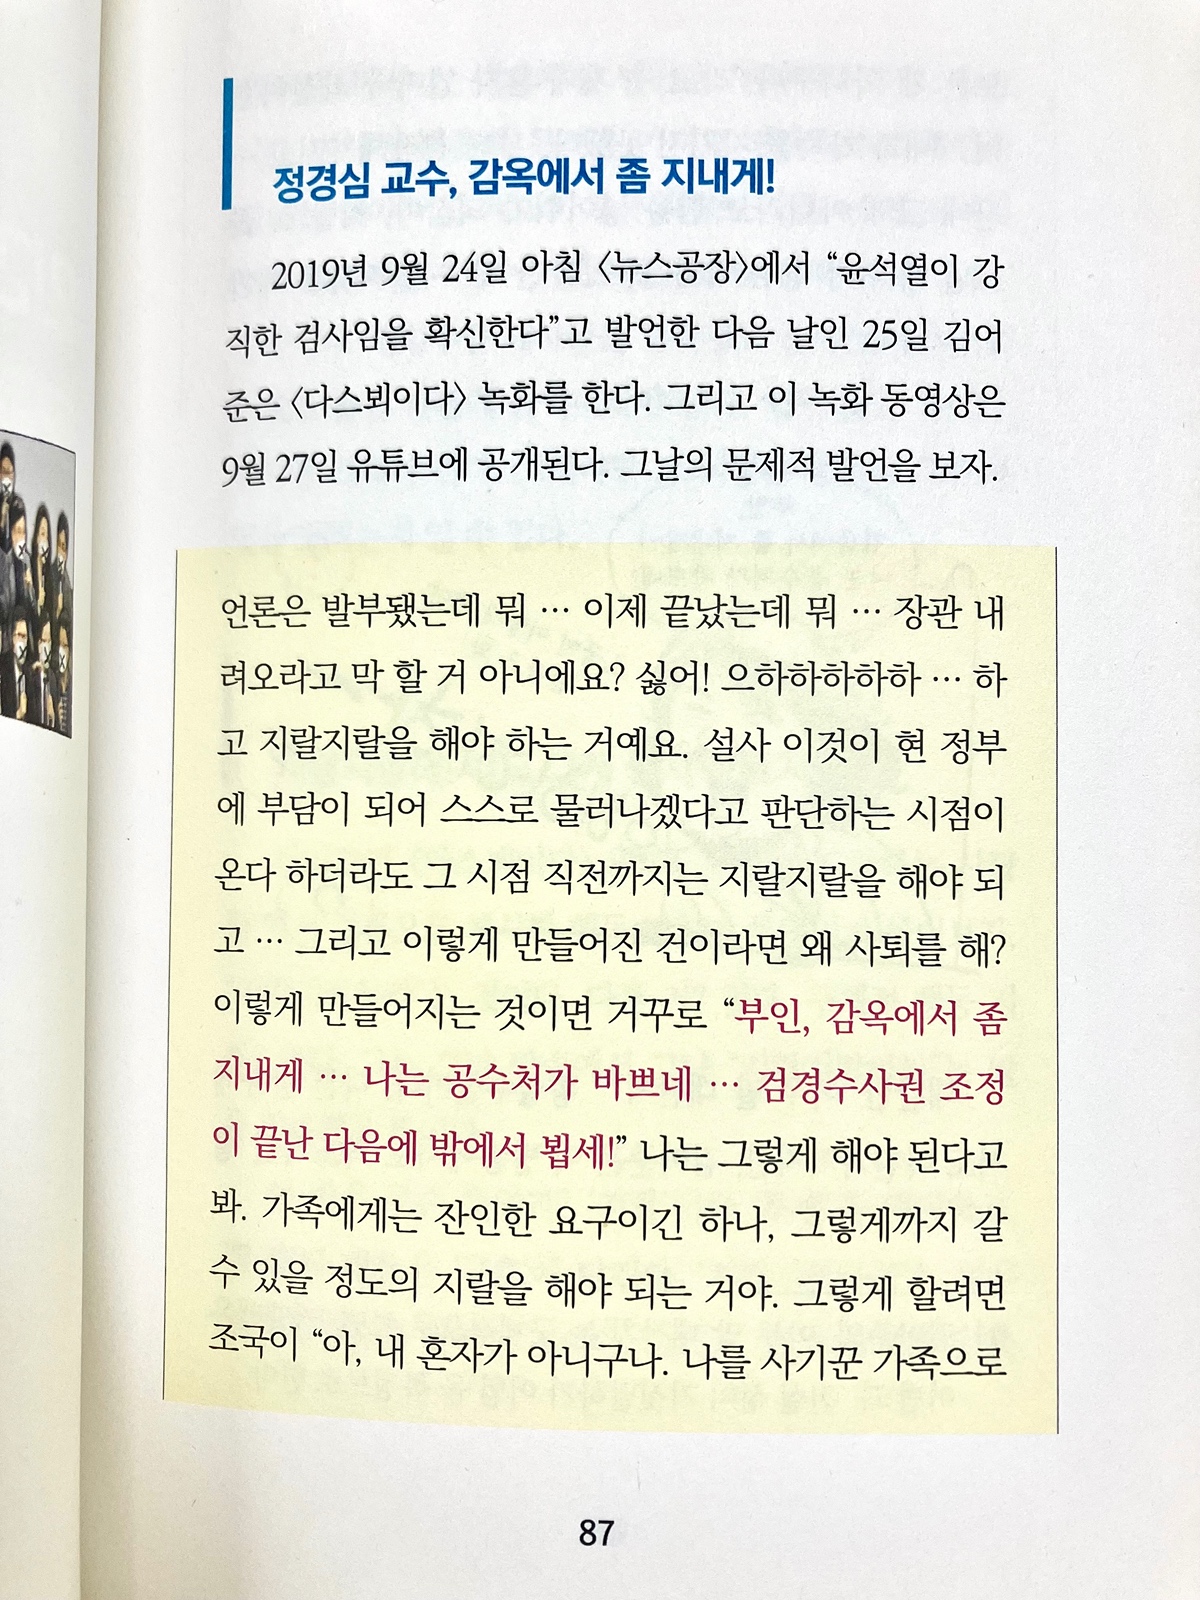 정경심 교수, 감옥에서 좀 지내게!
2019년 9월 24일 아침 〈뉴스공장〉에서 “윤석열이 강
직한 검사임을 확신한다”고 발언한 다음 날인 25일 김어
준은 〈다스뵈이다〉 녹화를 한다. 그리고 이 녹화 동영상은
9월 27일 유튜브에 공개된다. 그날의 문제적 발언을 보자.
언론은 발부됐는데 뭐 … 이제 끝났는데 뭐 … 장관 내
려오라고 막 할 거 아니에요? 싫어! 으하하하하하 … 하
고 지랄지랄을 해야 하는 거예요. 설사 이것이 현 정부
에 부담이 되어 스스로 물러나겠다고 판단하는 시점이
온다 하더라도 그 시점 직전까지는 지랄지랄을 해야 되
고 … 그리고 이렇게 만들어진 건이라면 왜 사퇴를 해?
이렇게 만들어지는 것이면 거꾸로 “부인, 감옥에서 좀
지내게 … 나는 공수처가 바쁘네 … 검경수사권 조정
이 끝난 다음에 밖에서 뵙세!” 나는 그렇게 해야 된다고
봐. 가족에게는 잔인한 요구이긴 하나, 그렇게까지 갈
수 있을 정도의 지랄을 해야 되는 거야. 그렇게 할려면
조국이 “아, 내 혼자가 아니구나. 나를 사기꾼 가족으로
87